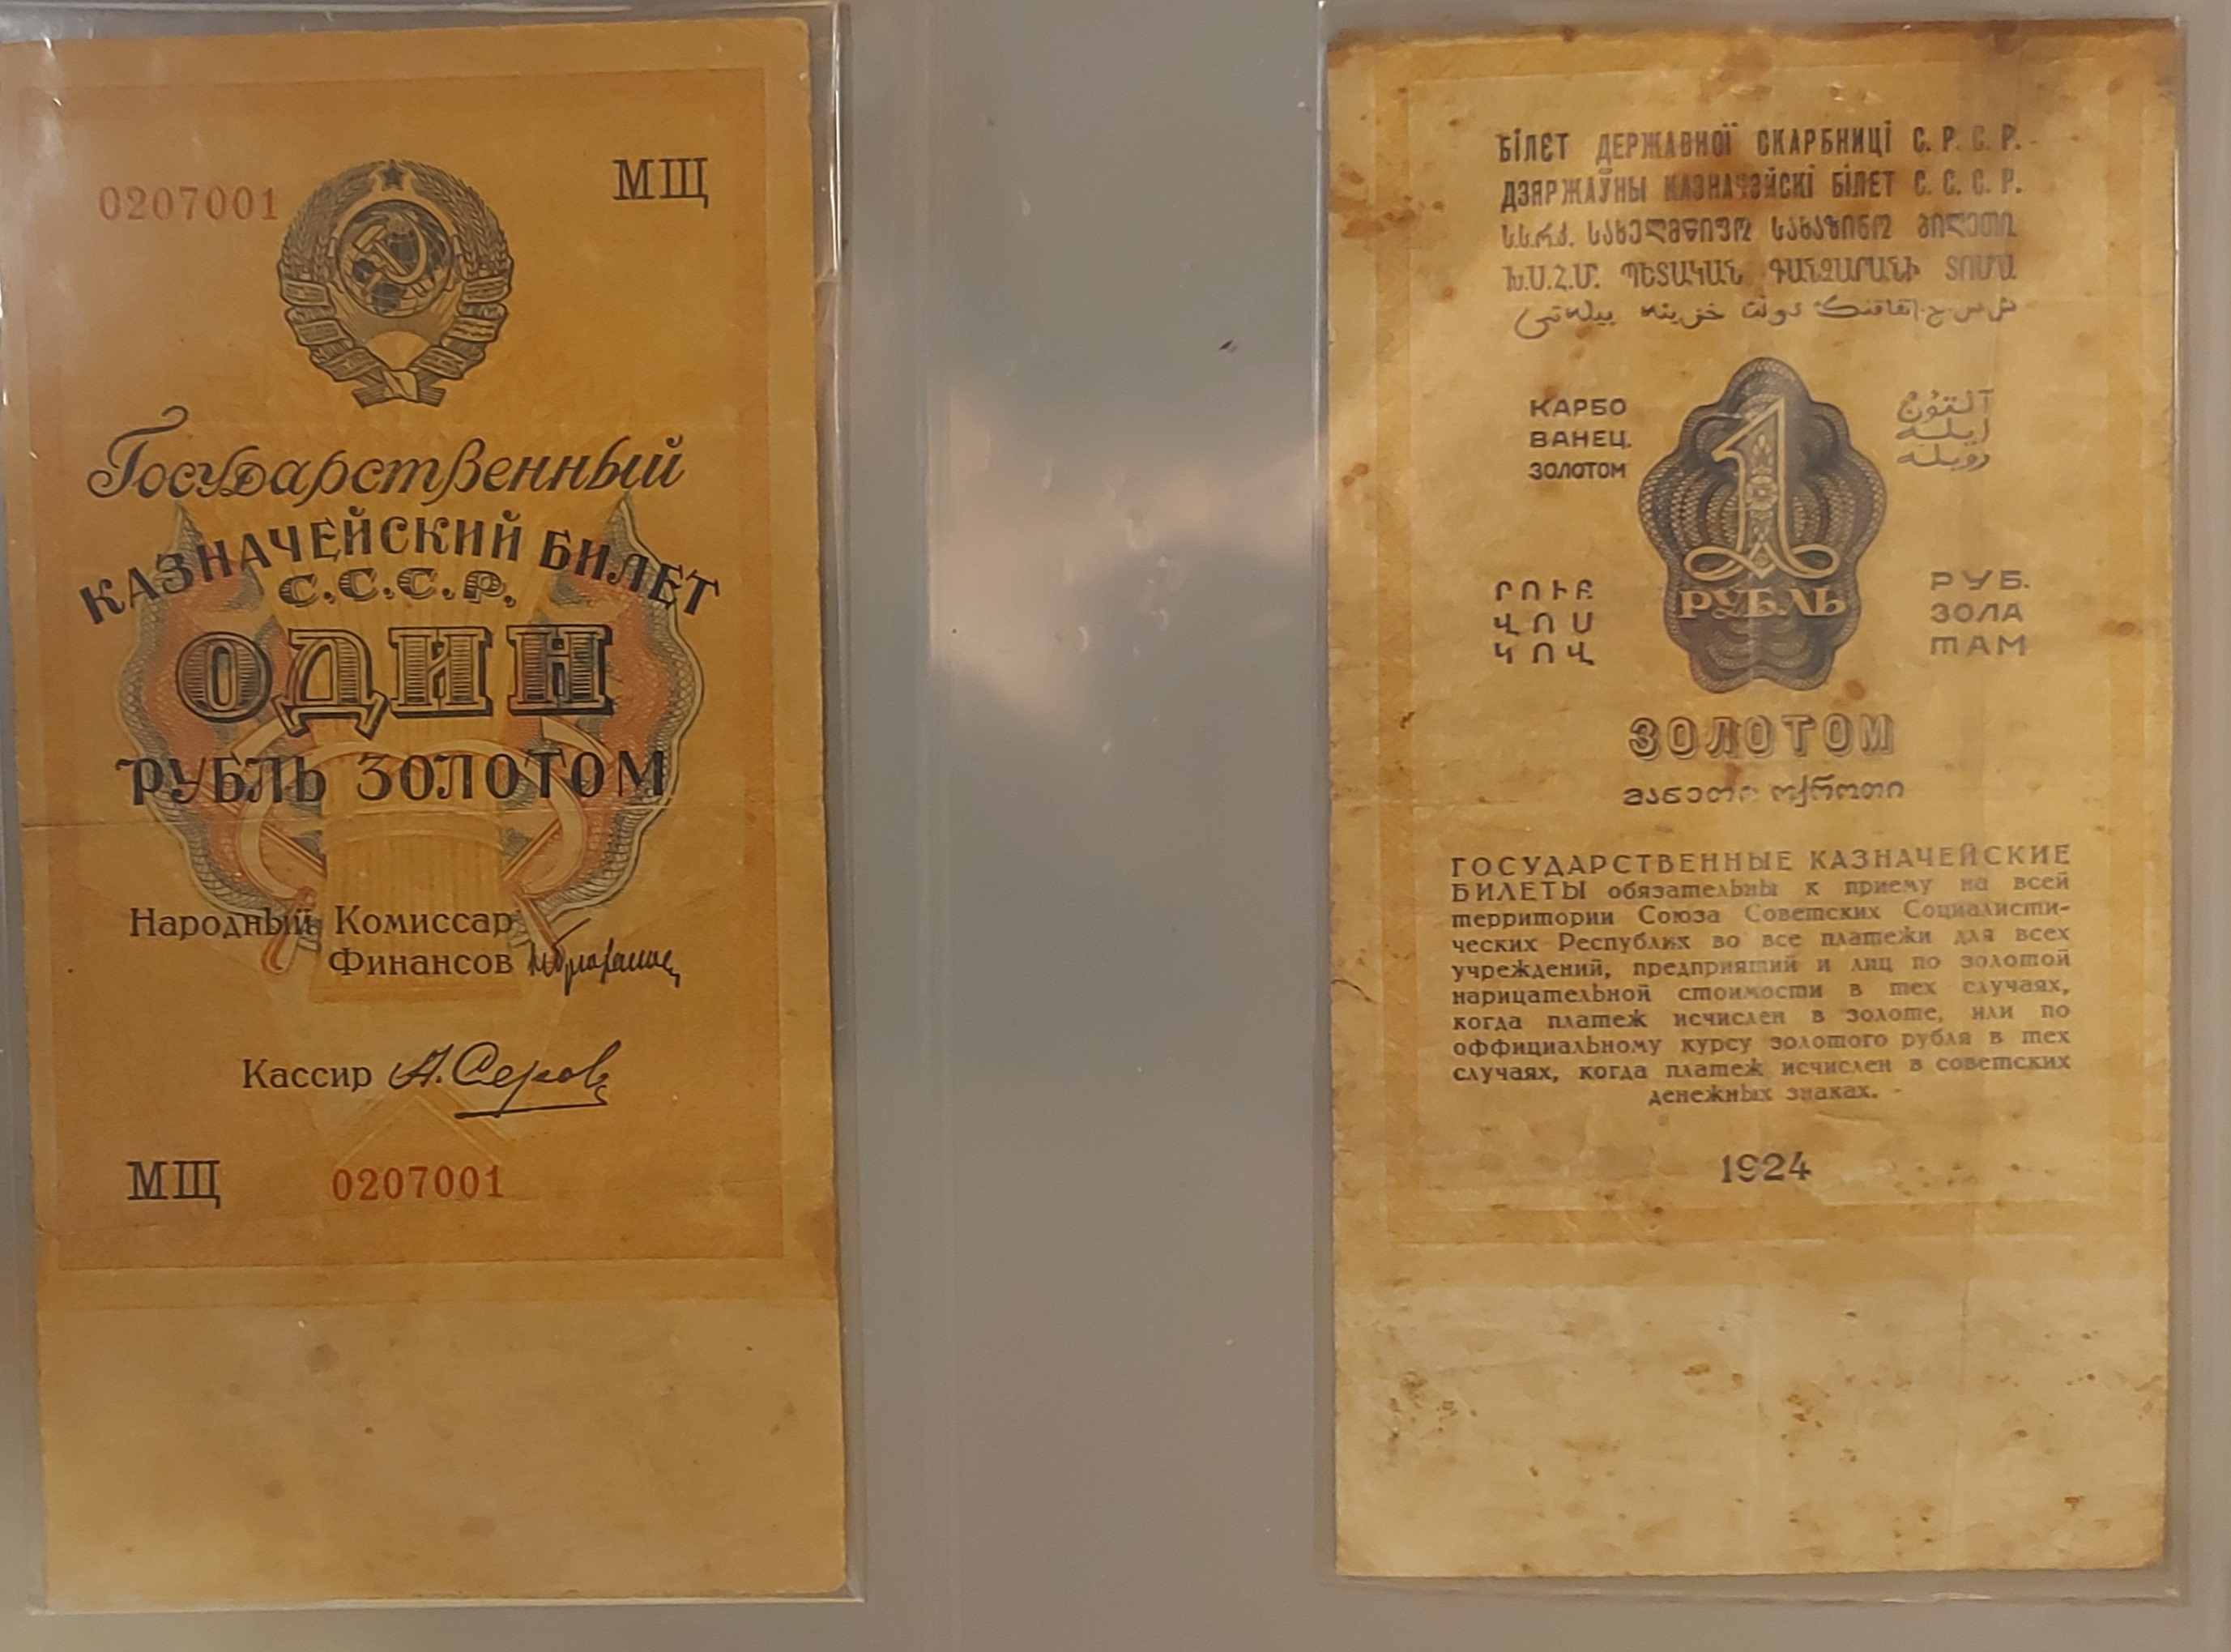 0207001
МЩ
Государственный
КАЗНАЧЕЙСКИЙ БИЛЕТ
С.С.С.Р.
ОДИН
РУБЛЬ ЗОЛОТОМ
Народный Комиссар
Финансов
Кассир А. Серов
МЩ 0207001
БІЛЄТ ДЕРЖАВНОЇ СКАРБНИЦІ С. Р. С. Р.
ДЗЯРЖАЎНЫ КАЗНАЧЭЙСКІ БІЛЕТ С. С. С. Р.
ს.ს.რ.კ. სახელმწიფო სახაზინო ბილეთი
Խ.Ս.Հ.Մ. ՊԵՏԱԿԱՆ ԳԱՆՁԱՐԱՆԻ ՏՈՄՍ
دولت خزينه بيله‌تى
КАРБО
ВАНЕЦ.
ЗОЛОТОМ
آلتون
ايله
روبله
1
РУБЛЬ
ՐՈՒԲ
ՎՈՍ
ԿՈՎ
РУБ.
ЗОЛА
ТАМ
ЗОЛОТОМ
მანეთი ოქროთი
ГОСУДАРСТВЕННЫЕ КАЗНАЧЕЙСКИЕ
БИЛЕТЫ обязательны к приему на всей
территории Союза Советских Социалисти-
ческих Республик во все платежи для всех
учреждений, предприятий и лиц по золотой
нарицательной стоимости в тех случаях,
когда платеж исчислен в золоте, или по
оффициальному курсу золотого рубля в тех
случаях, когда платеж исчислен в советских
денежных знаках.
1924